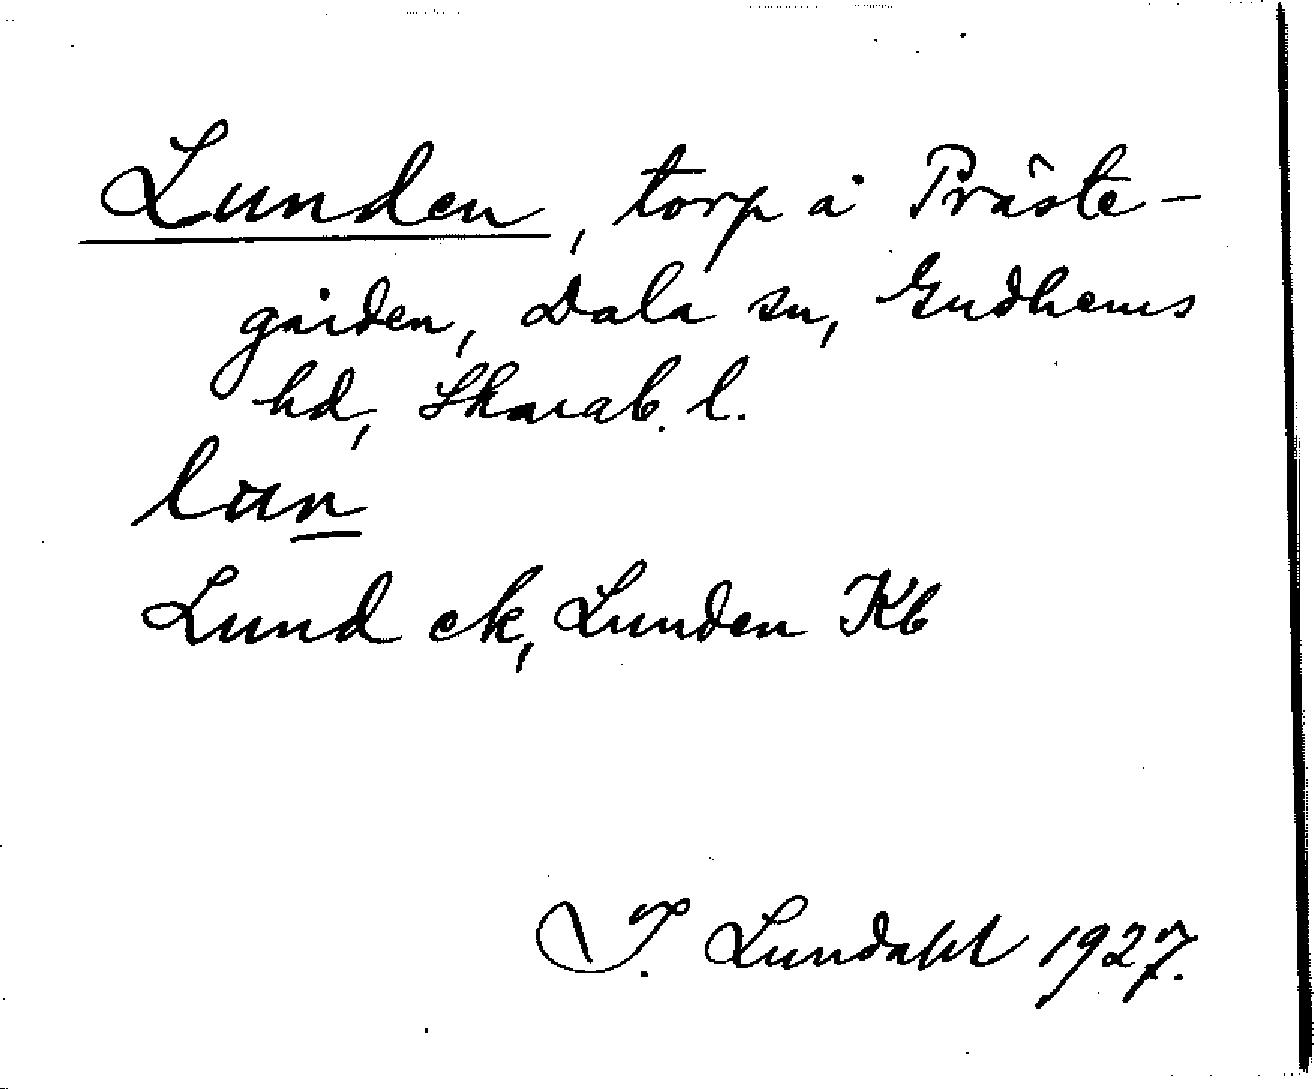 Lunden, torp å Präste-
gården, Dala sn, Gudhems
hd, Skarab. l.
lun
Lund ek, Lunden Kb
I. Lundahl 1927.